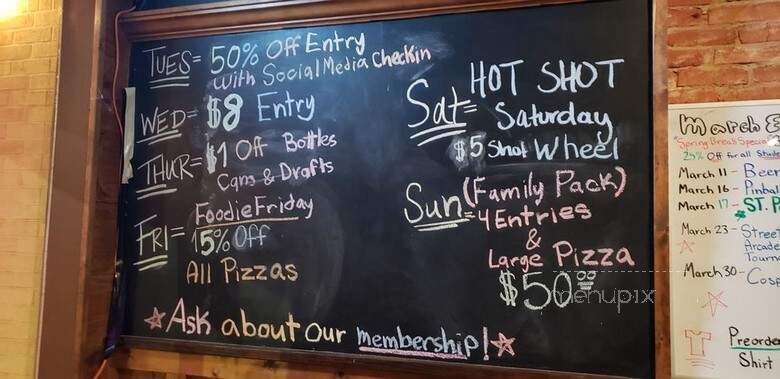 TUES= 50% Off Entry
with Social Media Checkin
WED= $8 Entry
THUR= $1 Off Bottles
Cans & Drafts
FRI= Foodie Friday
15% Off
All Pizzas
Sat= HOT SHOT
Saturday
$5 Shot Wheel
Sun= (Family Pack)
4 Entries
&
Large Pizza
$50 00
Ask about our membership!
menupix
March
Spring Break Special
25% Off for all
March 11 - Beer
March 16 - Pinbal
March 17 - ST. P
March 23 - Street
Arcade
Tourn
March 30 - Cosp
Preorde
Shirt